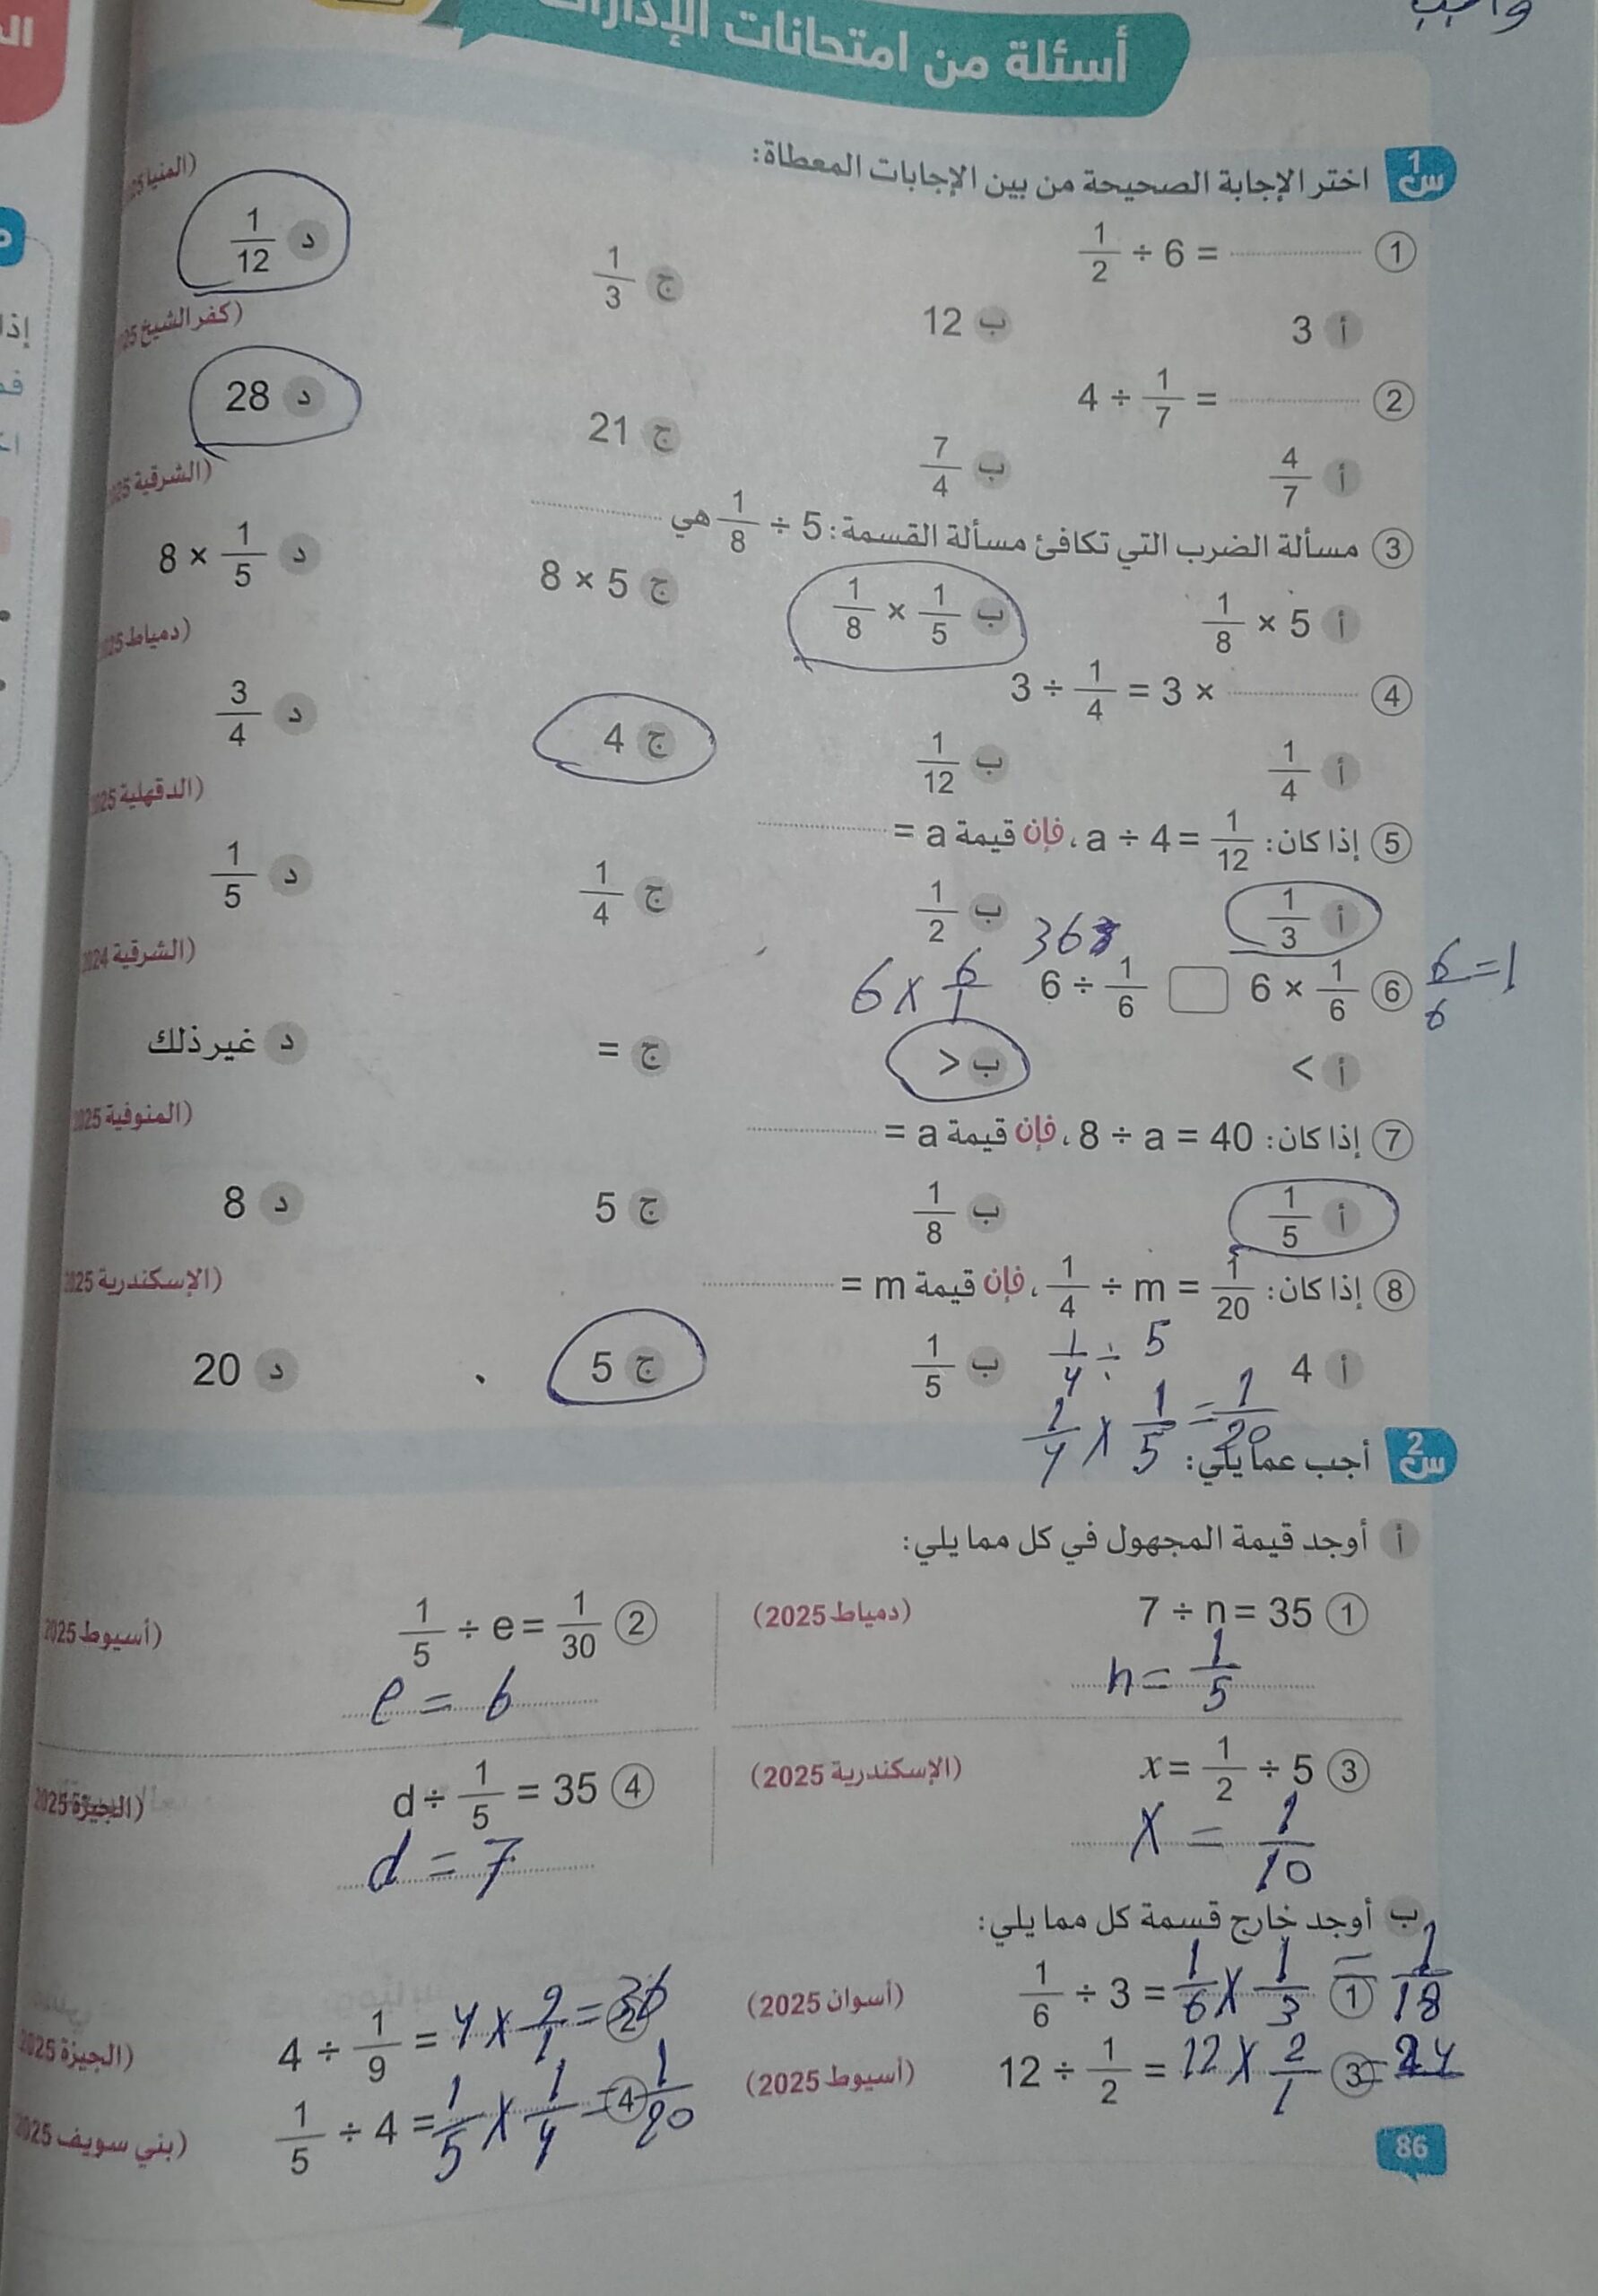 واجب
أسئلة من امتحانات الإدارات
س1 اختر الإجابة الصحيحة من بين الإجابات المعطاة:
(المنيا 2025
① 1/2 ÷ 6 = ..........
أ 3 ب 12 ج 1/3 د 1/12
(كفر الشيخ 2025
② 4 ÷ 1/7 = ..........
أ 4/7 ب 7/4 ج 21 د 28
(الشرقية 2025
③ مسألة الضرب التي تكافئ مسألة القسمة: 1/8 ÷ 5 هي ..........
أ 1/8 × 5 ب 1/8 × 1/5 ج 8 × 5 د 8 × 1/5
(دمياط 2025
④ 3 ÷ 1/4 = 3 × ..........
أ 1/4 ب 1/12 ج 4 د 3/4
(الدقهلية 2025
⑤ إذا كان: a ÷ 4 = 1/12، فإن قيمة a = ..........
أ 1/3 ب 1/2 ج 1/4 د 1/5
(الشرقية 2024
⑥ 6 × 1/6 □ 6 ÷ 1/6
6/6 = 1
6 × 6/1
36
أ < ب > ج = د غير ذلك
(المنوفية 2025
⑦ إذا كان: 8 ÷ a = 40، فإن قيمة a = ..........
أ 1/5 ب 1/8 ج 5 د 8
(الإسكندرية 2025
⑧ إذا كان: 1/4 ÷ m = 1/20، فإن قيمة m = ..........
أ 4 ب 1/5 ج 5 د 20
1/4 ÷ 5
1/4 × 1/5 = 1/20
س2 أجب عما يلي:
أ أوجد قيمة المجهول في كل مما يلي:
① 7 ÷ n = 35 (دمياط 2025)
n = 1/5
② 1/5 ÷ e = 1/30 (أسيوط 2025
e = 6
③ x = 1/2 ÷ 5 (الإسكندرية 2025)
x = 1/10
④ d ÷ 1/5 = 35 (الجيزة 2025
d = 7
ب أوجد خارج قسمة كل مما يلي:
① 1/6 ÷ 3 = 1/6 × 1/3 = 1/18 (أسوان 2025)
② 4 ÷ 1/9 = 4 × 9/1 = 36 (الجيزة 2025
③ 12 ÷ 1/2 = 12 × 2/1 = 24 (أسيوط 2025)
④ 1/5 ÷ 4 = 1/5 × 1/4 = 1/20 (بني سويف 2025
86